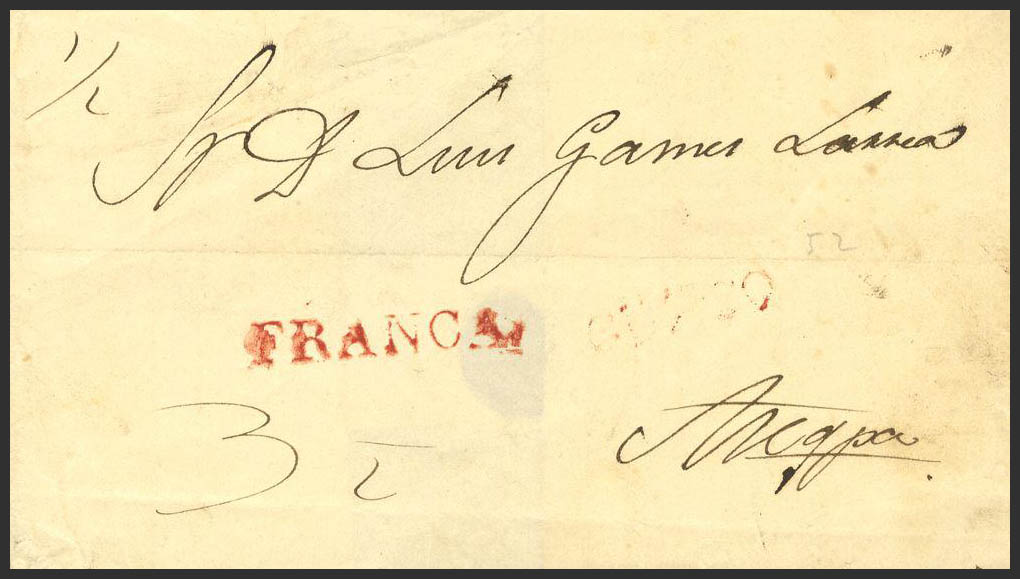 1/2
Sr D Luis Gamio Larrea
52
FRANCA
CUZCO
3 1/2
Areqpa